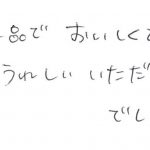 品で おいしくて
うれしい いただ
でし